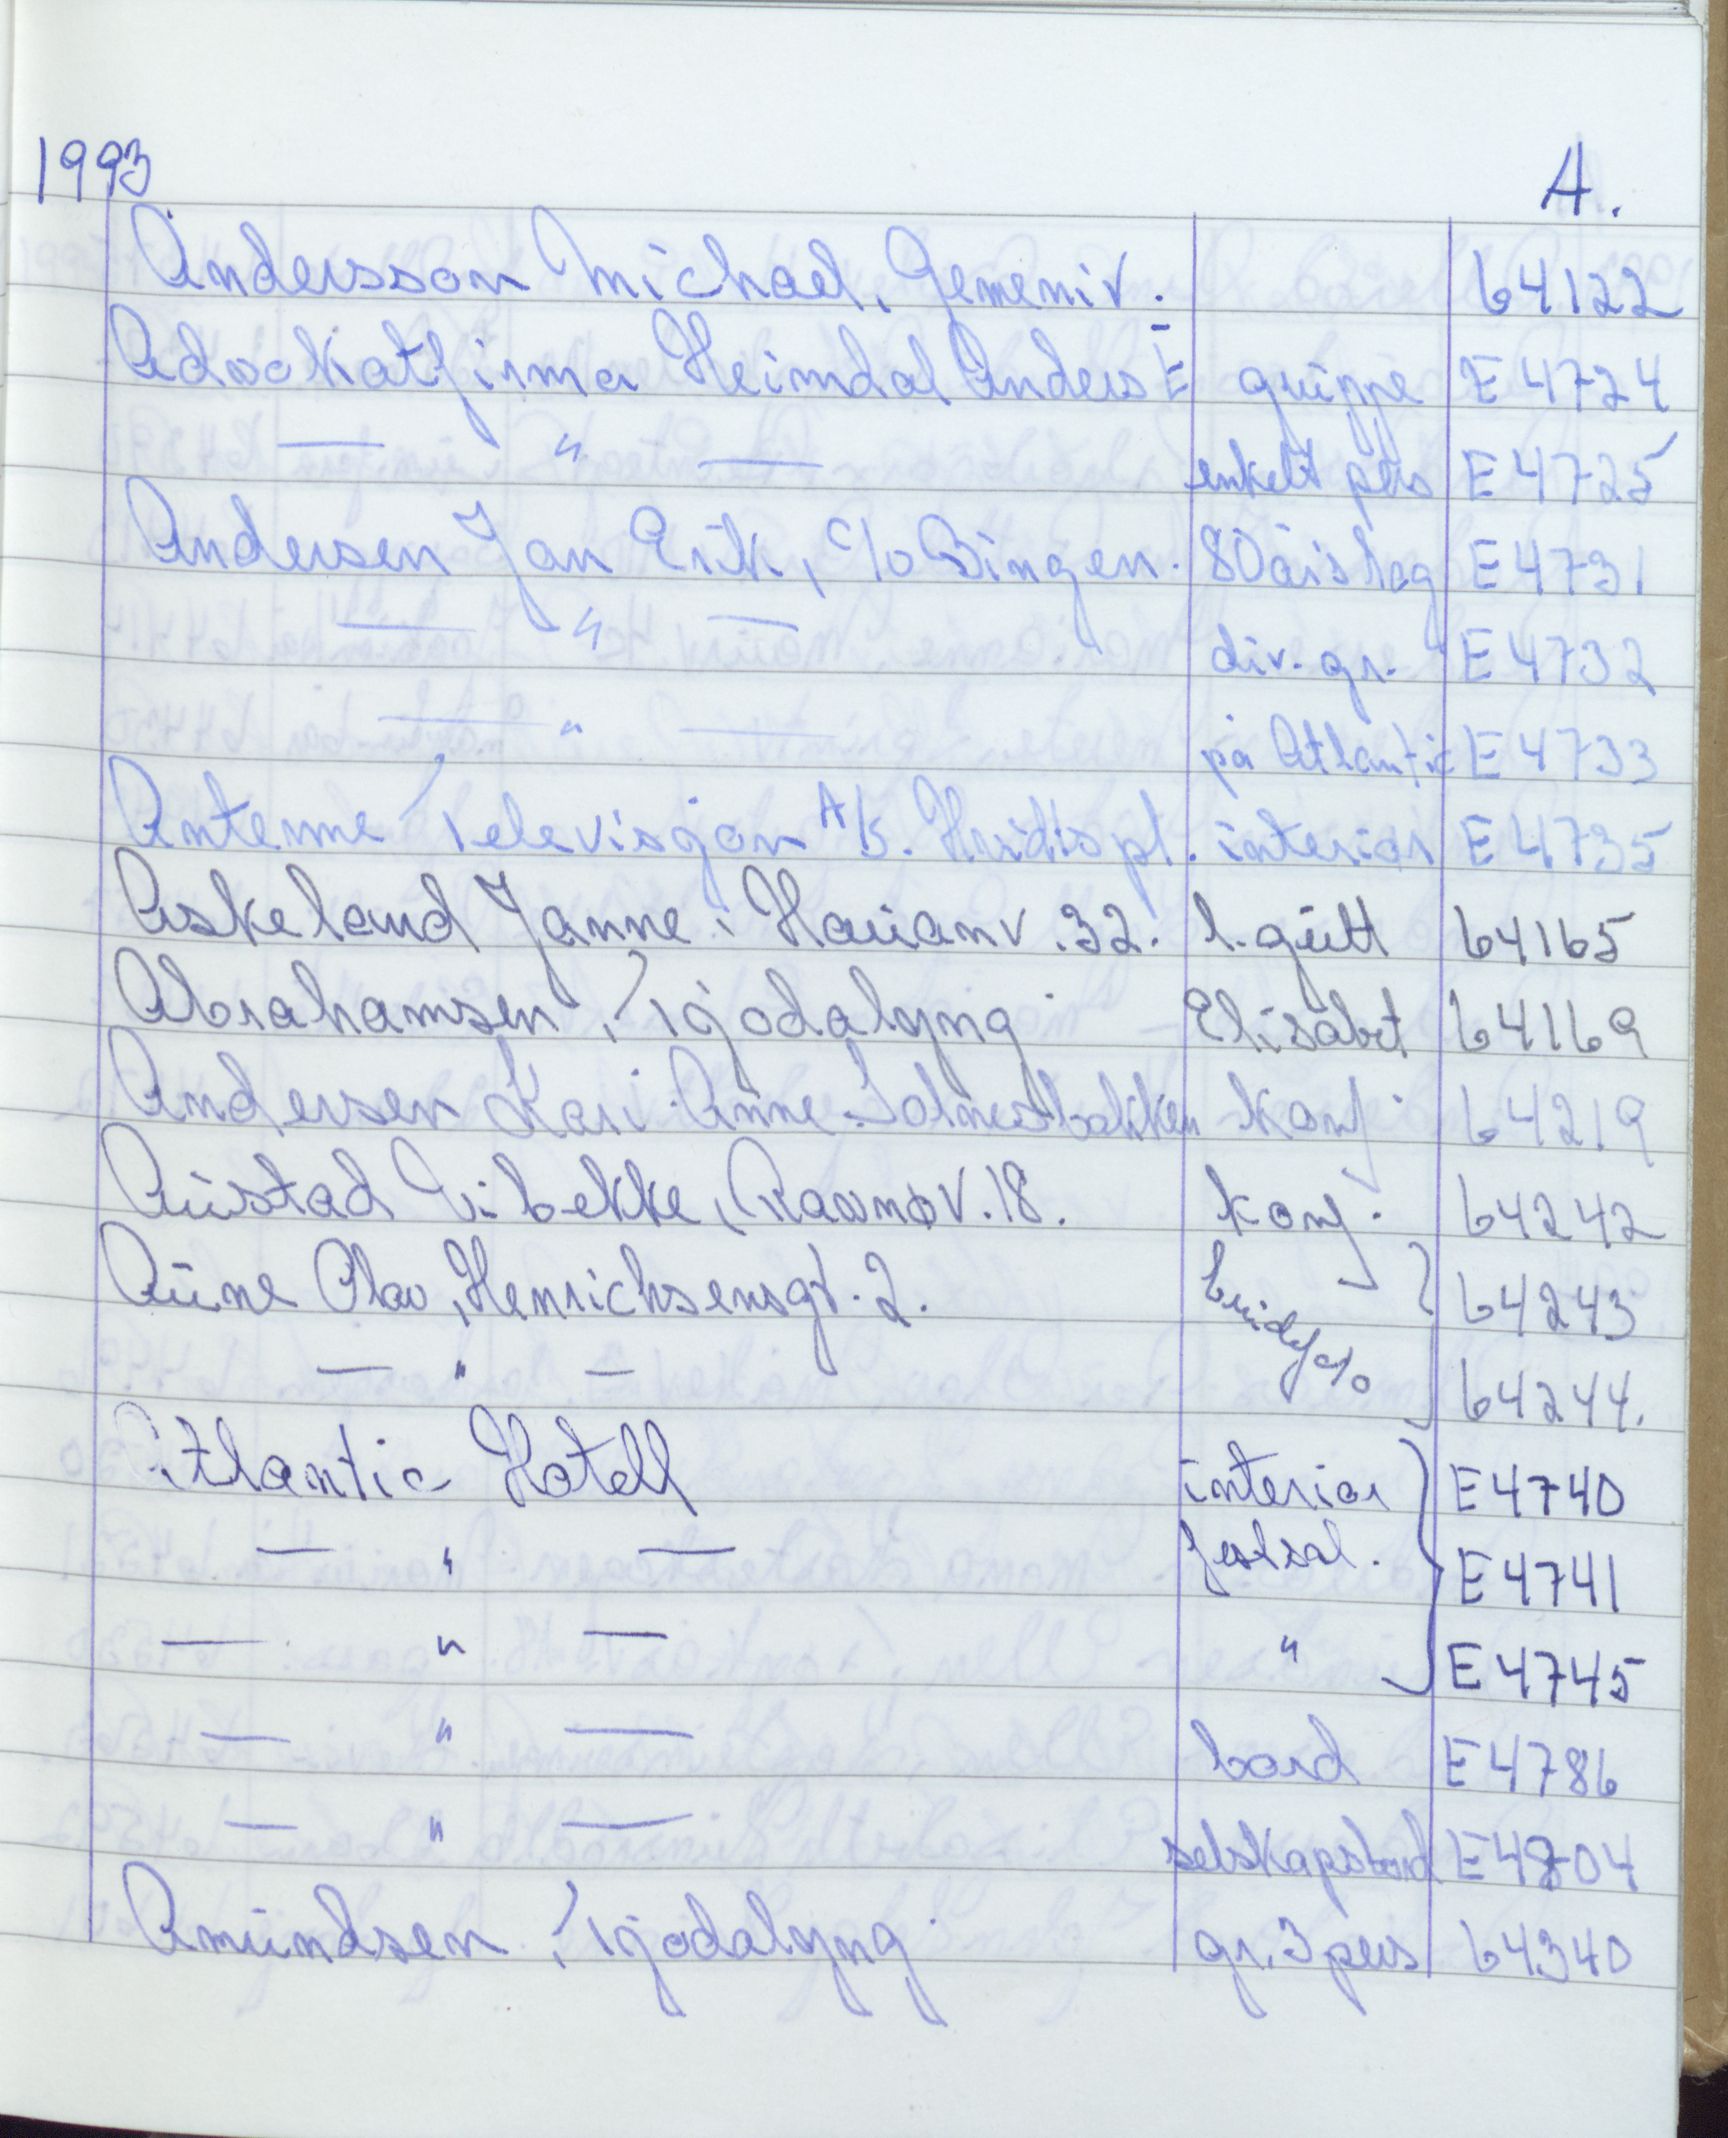 1993 A.
Andersson Michael, Gemeniv. 64122
Advokatfirma Heimdal Anders E gruppe E4724
— " — enkelt pers E4725
Andersen Jan Erik, c/o Bingen. 80årslag E4731
— " — div. gr. E4732
— " — på Atlantic E4733
Antenne Televisjon A/S. interiør E4735
Askeland Janne, Hauanv. 32. l. gutt 64165
Abrahamsen, Tjodalyng Elisabet 64169
Andersen Kari-Anne konf. 64219
Austad Vibekke, Ravnøv. 18. konf. 64242
Aune Olav, Henrichsensgt. 2. brudef } 64243
— " — 64244.
Atlantic Hotell interiør } E4740
— " — festsal. E4741
— " — " E4745
— " — bord E4786
— " — selskapsbord E4804
Amundsen, Tjodalyng gr. 3 pers 64340